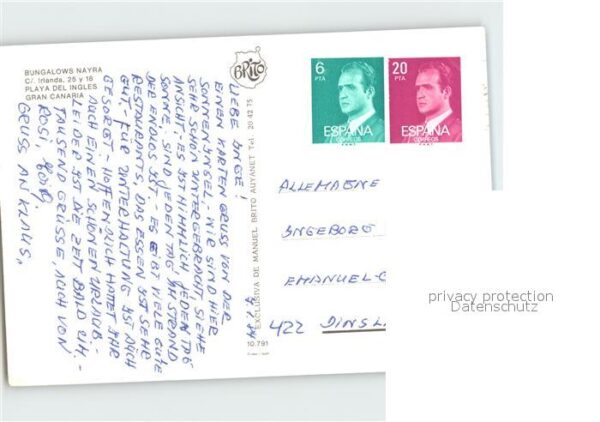 BUNGALOWS NAYRA
C/. Irlanda, 25 y 18
PLAYA DEL INGLES
GRAN CANARIA
BRITO
LIEBE INGE!
EINEN KARTEN GRUSS VON DER
SONNENINSEL. WIR SIND HIER
SEHR SCHÖN UNTERGEBRACHT SIEHE
ANSICHT, ES IST HIMMLICH JEDEN TAG
SONNE, SIND JEDEN TAG AM STRAND
DER ENDLOS IST. ES GIBT VIELE GUTE
RESTAURANTS, DAS ESSEN IST SEHR
GUT, FÜR UNTERHALTUNG IST AUCH
GESORGT - HOFFENDLICH HATTET IHR
AUCH EINEN SCHÖNEN URLAUB. -
LEIDER IST DIE ZEIT BALD UM. -
TAUSEND GRÜSSE, AUCH VON
ROSI,
GRUSS AN KLAUS,
EXCLUSIVA DE MANUEL BRITO AUYANET Tel. 20 42 75
10.791
6
PTA
ESPAÑA
CORREOS
20
PTA
ESPAÑA
CORREOS
ALLEMAGNE
INGEBORG
EMANUEL-
422 DINSL
privacy protection
Datenschutz